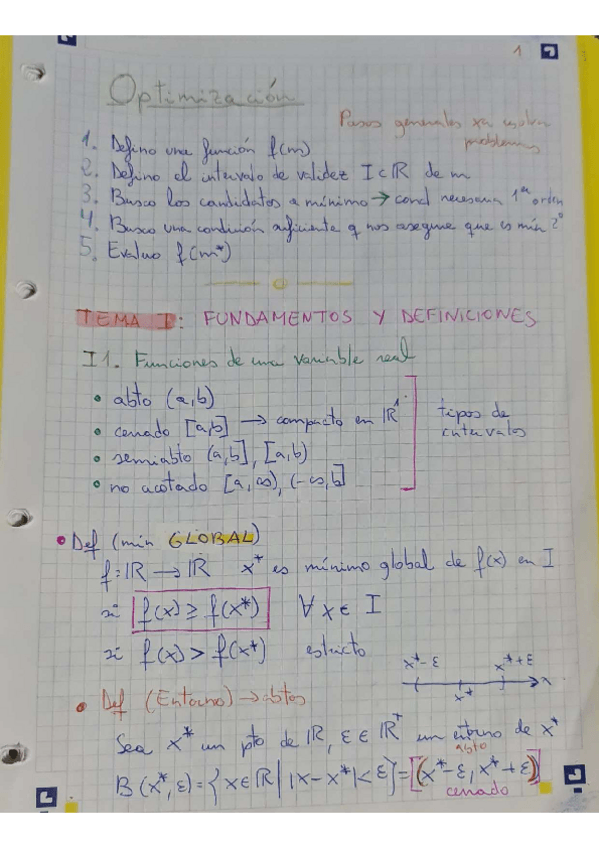 1
Optimización
Pasos generales xa resolver
problemas
1. Defino una función f(m)
2. Defino el intervalo de validez I⊂ℝ de m
3. Busco los candidatos a mínimo → cond necesaria 1er orden
4. Busco una condición suficiente q nos asegure que es mín 2º
5. Evaluo f(m*)
TEMA I: FUNDAMENTOS Y DEFINICIONES
I1. Funciones de una variable real
• abto (a,b)
• cerrado [a,b] → compacto en ℝ¹
tipos de
intervalos
• semiabto (a,b], [a,b)
• no acotado [a,∞), (-∞,b]
• Def (mín GLOBAL)
f: ℝ → ℝ x* es mínimo global de f(x) en I
si f(x) ≥ f(x*) ∀ x ∈ I
si f(x) > f(x*) estricto
x*-ε x*+ε
x*
• Def (Entorno) → abtos
Sea x* un pto de ℝ, ε ∈ ℝ⁺ un entorno de x*
abto
B(x*, ε) = {x∈ℝ | |x-x*|<ε} = [(x*-ε, x*+ε)]
cerrado